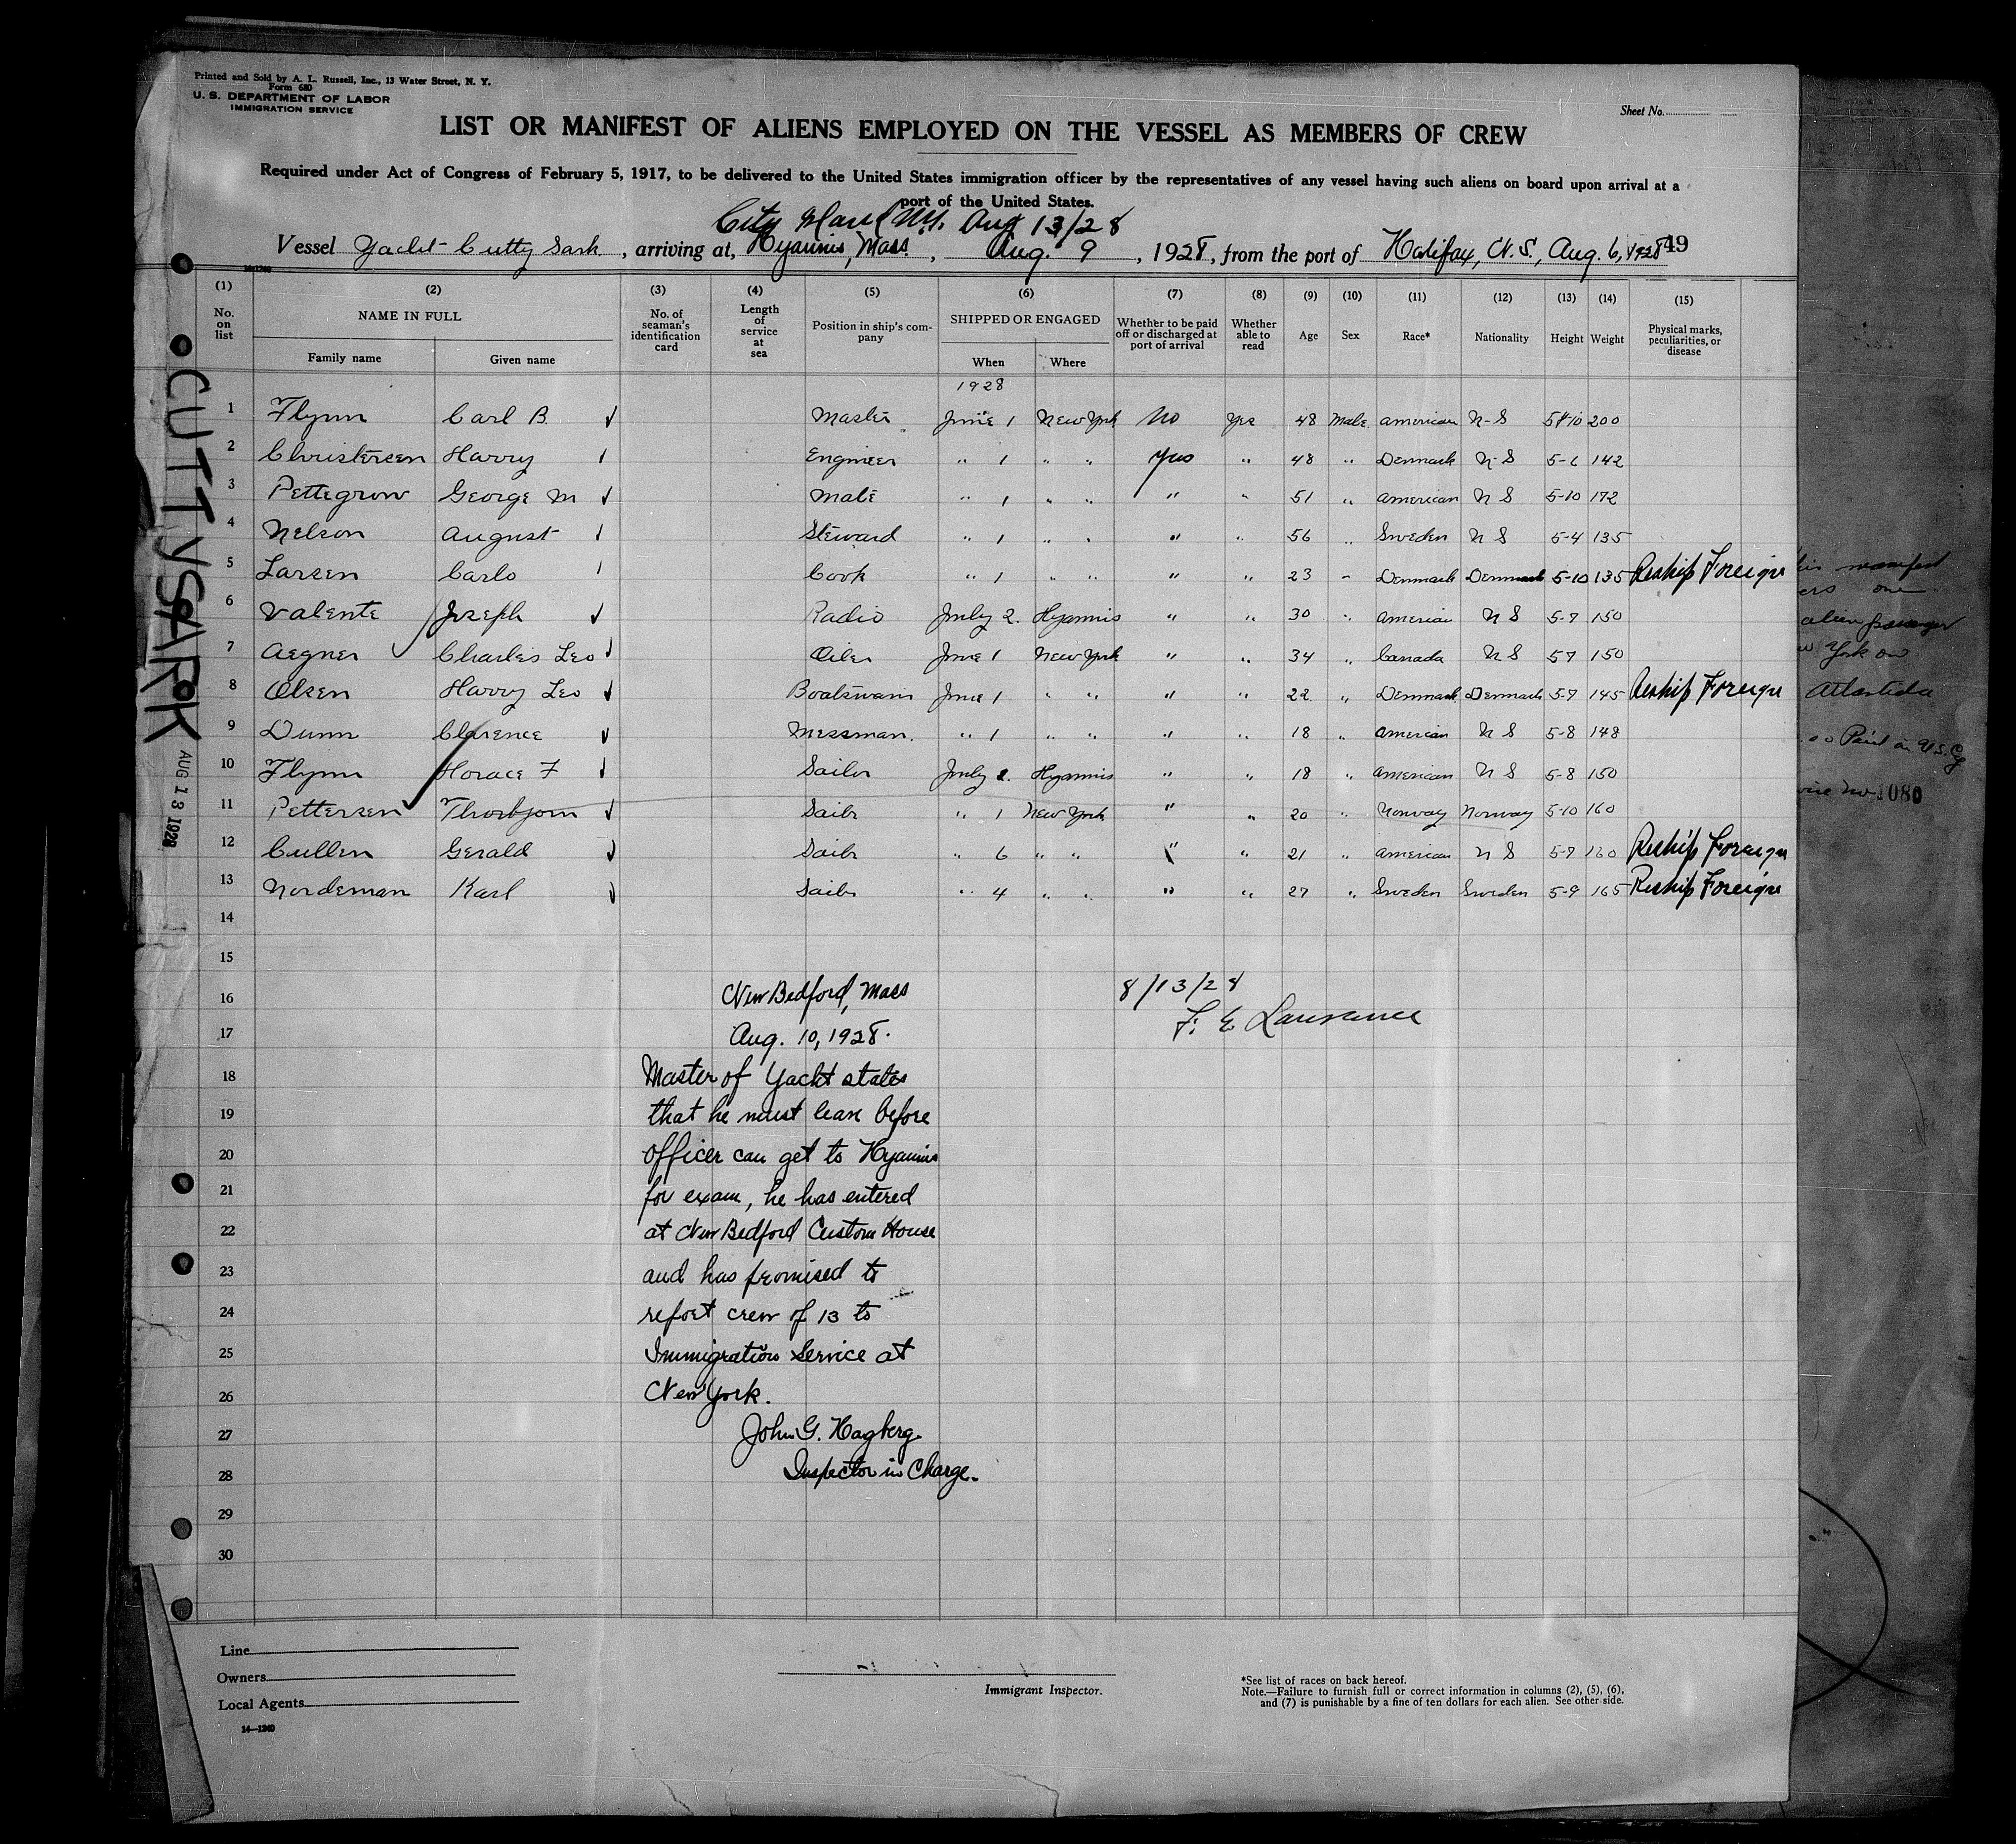 Printed and Sold by A. L. Russell, Inc., 13 Water Street, N. Y.
Form 680
U. S. DEPARTMENT OF LABOR
IMMIGRATION SERVICE
Sheet No.
LIST OR MANIFEST OF ALIENS EMPLOYED ON THE VESSEL AS MEMBERS OF CREW
Required under Act of Congress of February 5, 1917, to be delivered to the United States immigration officer by the representatives of any vessel having such aliens on board upon arrival at a
port of the United States.
City Island N.Y. Aug 13/28
Vessel Yacht Cutty Sark, arriving at, Hyannis, Mass., Aug. 9, 1928, from the port of Halifax, N.S., Aug. 6, 1928 49
14-1240
(1) (2) (3) (4) (5) (6) (7) (8) (9) (10) (11) (12) (13) (14) (15)
No. on list NAME IN FULL No. of seaman's identification card Length of service at sea Position in ship's company SHIPPED OR ENGAGED Whether to be paid off or discharged at port of arrival Whether able to read Age Sex Race* Nationality Height Weight Physical marks, peculiarities, or disease
Family name Given name When Where
1928
1 Flynn Carl B. ✓ Master June 1 New York No Yes 48 Male American N-S 5-10 200
2 Christersen Harry Engineer " 1 " " Yes " 48 " Denmark N-S 5-6 142
3 Pettegrow George M ✓ Mate " 1 " " " " 51 " American N S 5-10 172
4 Nelson August Steward " 1 " " " " 56 " Sweden N S 5-4 135
5 Larsen Carlo Cook " 1 " " " " 23 " Denmark Denmark 5-10 135 Reship Foreign
6 Valente Joseph ✓ Radio July 2. Hyannis " " 30 " American N S 5-7 150
7 Aegner Charles Leo Oiler June 1 New York " " 34 " Canada N S 5 7 150
8 Olsen Harry Leo ✓ Boatswain June 1 " " " " 22 " Denmark Denmark 5-7 145 Reship Foreign
9 Dunn Clarence ✓ Messman. " 1 " " " " 18 " American N S 5-8 148
10 Flynn Horace F ✓ Sailor July 2. Hyannis " " 18 " American N S 5-8 150
11 Pettersen Thorbjorn ✓ Sailr " 1 New York " " 20 " Norway Norway 5-10 160
12 Cullen Gerald ✓ Sailr " 6 " " " " 21 " American N S 5-9 Reship Foreign
13 Nordeman Karl ✓ Sailr " 4 " " " " 27 " Sweden Sweden 5-9 165 Reship Foreign
14
15
16
17
18
19
20
21
22
23
24
25
26
27
28
29
30
New Bedford, Mass
Aug. 10, 1928.
Master of Yacht states
that he must leave before
officer can get to Hyannis
for exam, he has entered
at New Bedford Custom House
and has promised to
report crew of 13 to
Immigration Service at
New York.
John G. Hagberg.
Inspector in Charge.
8/13/28
F. E. Lawrence
CUTTY SARK
AUG 13 1928
Line
Owners
Local Agents
14—1240
Immigrant Inspector.
*See list of races on back hereof.
Note.—Failure to furnish full or correct information in columns (2), (5), (6),
and (7) is punishable by a fine of ten dollars for each alien. See other side.
manifest
one
alien passenger
York on
Atlantida
Paid in U.S. Cy
1080